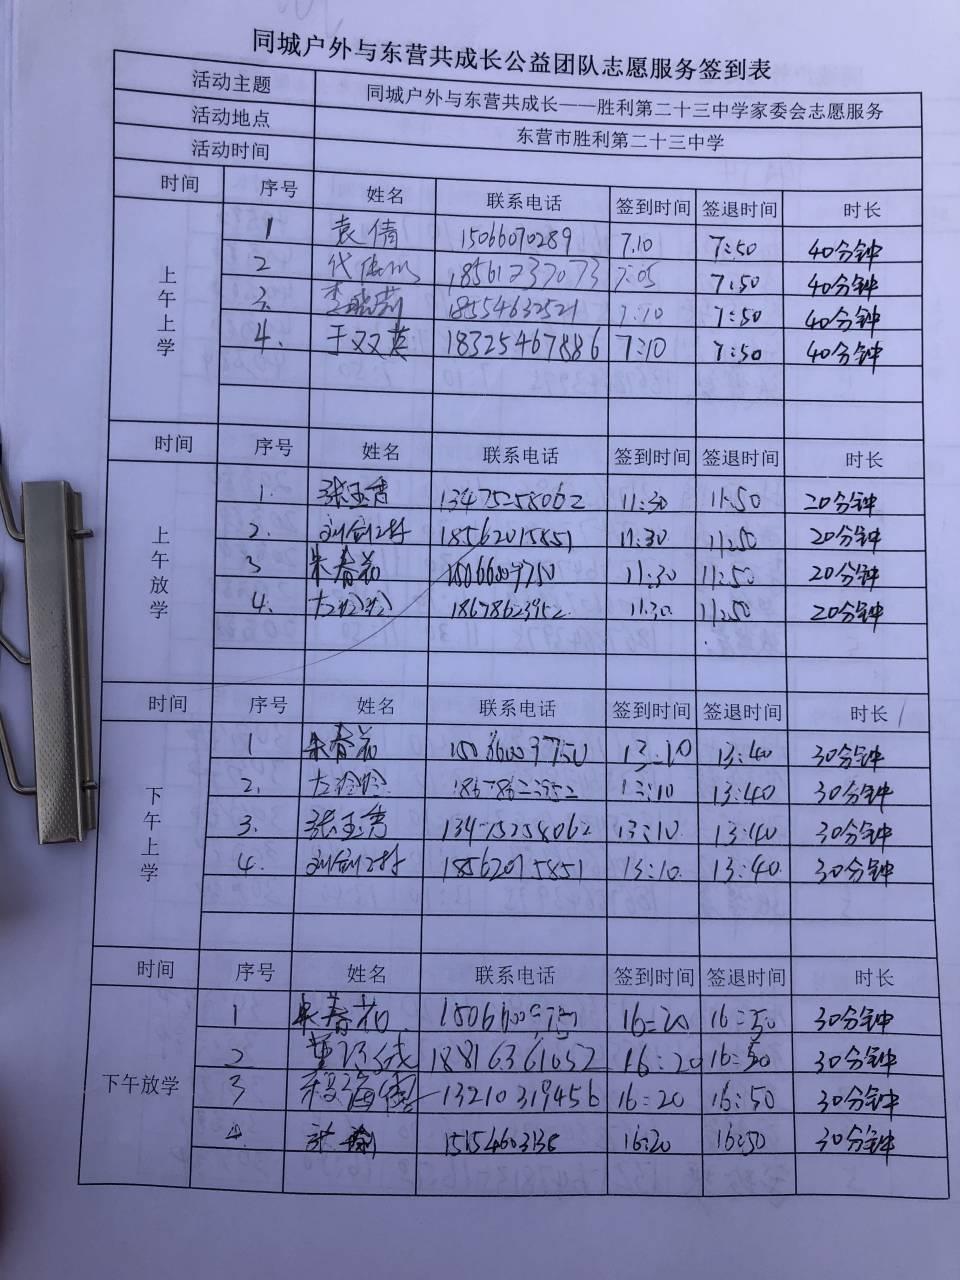 同城户外与东营共成长公益团队志愿服务签到表
活动主题 同城户外与东营共成长——胜利第二十三中学家委会志愿服务
活动地点 东营市胜利第二十三中学
活动时间
时间 序号 姓名 联系电话 签到时间 签退时间 时长
上午上学
1 袁倩 15066070289 7.10 7:50 40分钟
2 18561237073 7:05 7:50 40分钟
3. 李晓莉 18554632521 7:10 7:50 40分钟
4. 于双英 18325467886 7:10 7:50 40分钟
时间 序号 姓名 联系电话 签到时间 签退时间 时长
上午放学
1. 张玉秀 13475258062 11:30 11:50 20分钟
2. 18562015851 11:30 11:50 20分钟
3 朱春花 15066009750 11:30 11:50 20分钟
4. 左玲玲 18678623952 11:30 11:50 20分钟
时间 序号 姓名 联系电话 签到时间 签退时间 时长
下午上学
1 朱春花 15066009750 13:10 13:40 30分钟
2. 左玲玲 18678623952 13:10 13:40 30分钟
3. 张玉秀 13475258062 13:10 13:40 30分钟
4. 18562015851 13:10 13:40 30分钟
时间 序号 姓名 联系电话 签到时间 签退时间 时长
下午放学
1 朱春花 15066009750 16:20 16:50 30分钟
2 18816361052 16:20 16:50 30分钟
3 13210319456 16:20 16:50 30分钟
4 张 16:20 16:50 30分钟